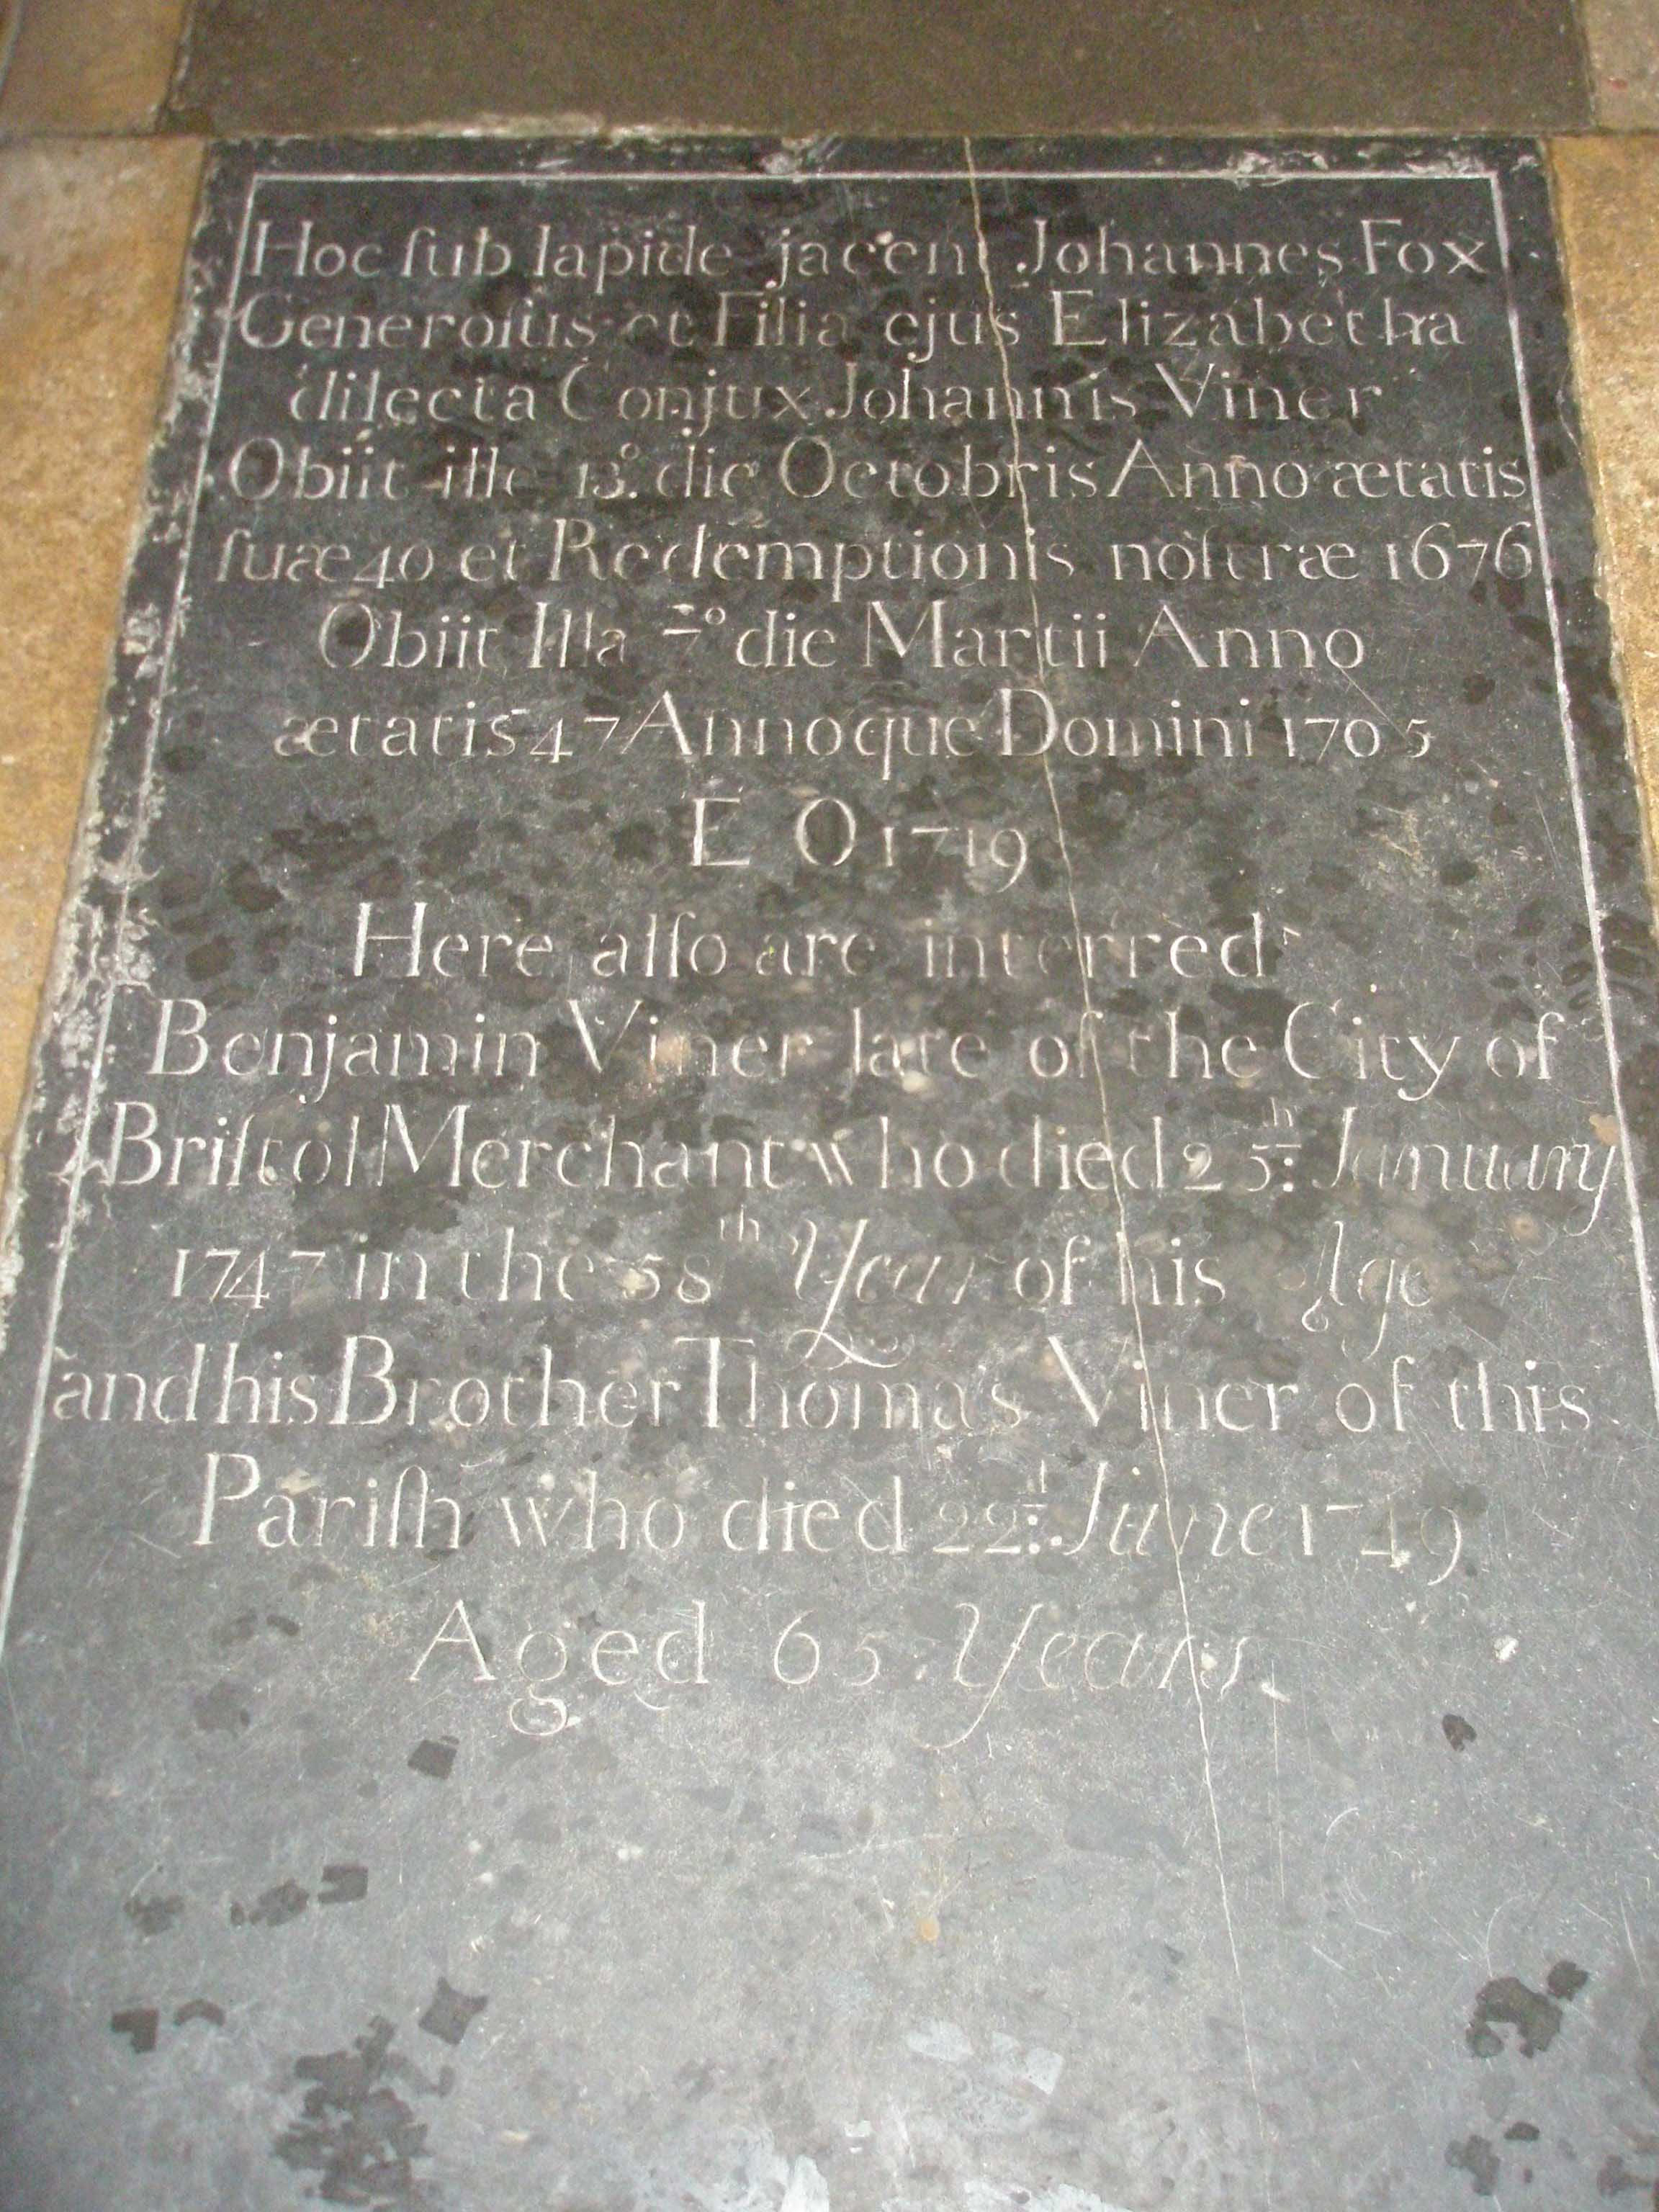 Hoc ſub lapide jacent Johannes Fox
Generoſus et Filia ejus Elizabetha
dilecta Conjux Johannis Viner
Obiit ille 13.º die Octobris Anno ætatis
ſuæ 40 et Redemptionis noſtræ 1676
Obiit Illa 7º die Martii Anno
ætatis 47 Annoque Domini 1705
E O 1719
Here alſo are interred
Benjamin Viner late of the City of
Briſtol Merchant who died 25th: January
1747 in the 58th Year of his Age
and his Brother Thomas Viner of this
Pariſh who died 22d: June 1749
Aged 65 Years